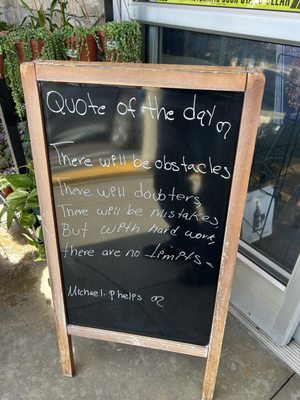 Quote of the day
There will be obstacles
There will doubters,
There will be Mistakes,
But with hard work,
there are no limits.
Michael. phelps